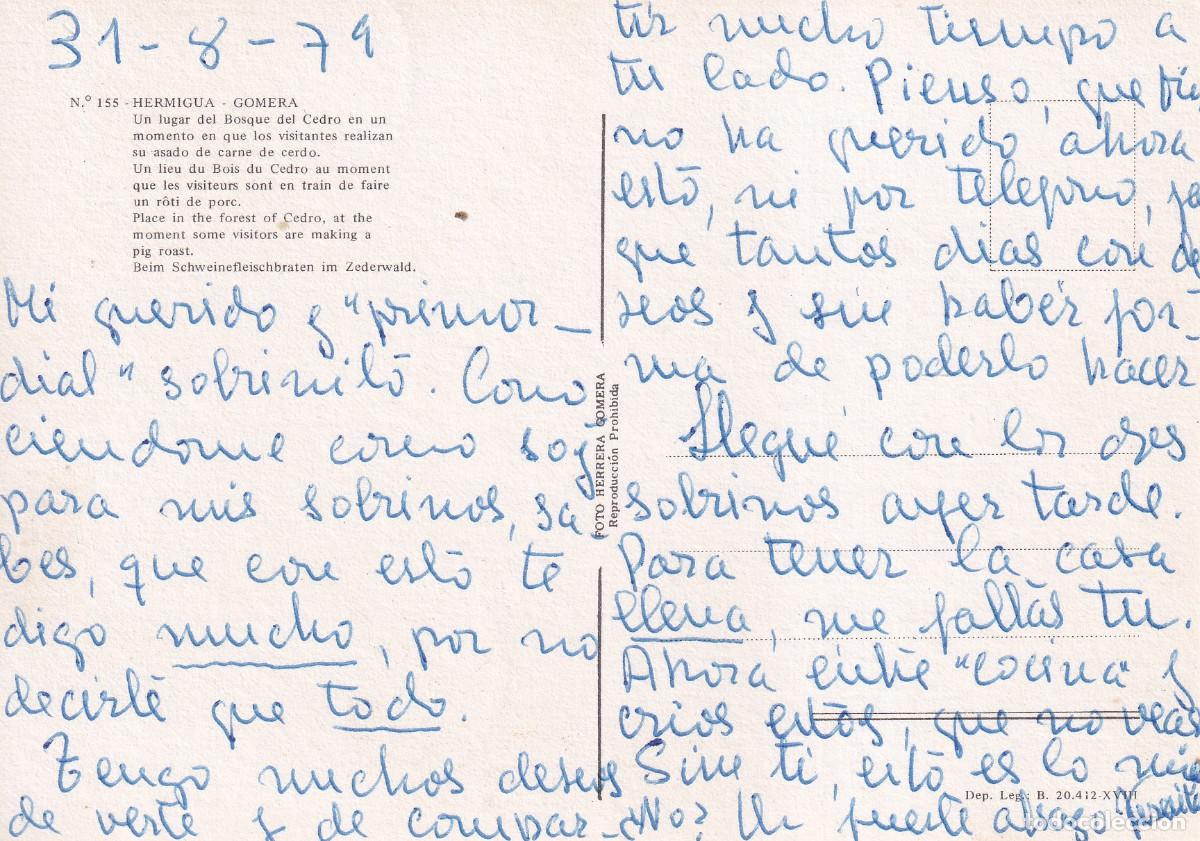 31-8-79
N.º 155 - HERMIGUA - GOMERA
Un lugar del Bosque del Cedro en un
momento en que los visitantes realizan
su asado de carne de cerdo.
Un lieu du Bois du Cedro au moment
que les visiteurs sont en train de faire
un rôti de porc.
Place in the forest of Cedro, at the
moment some visitors are making a
pig roast.
Beim Schweinefleischbraten im Zederwald.
Mi querido y "primor-
dial" sobrinito. Cono
ciendome como soy
para mis sobrinos, sa
bes, que con esto te
digo mucho, por no
decirte que todo.
Tengo muchos deseos
de verte y de compar-
FOTO HERRERA GOMERA
Reproducción Prohibida
tir mucho tiempo a
tu lado. Pienso, que
no ha querido ahora
esto, ni por telefono,
que tantos dias con de
seos y sin haber for
ma de poderlo hacer
Llegué con los dres
sobrinos ayer tarde.
Para tener la casa
llena, me faltas tu.
Ahora entre "cocina" y
crios estos, que no veas
Sin ti, esto es lo mio
¿No? Un fuerte abrazo
Dep. Leg.: B. 20.412-XVIII
todocoleccion